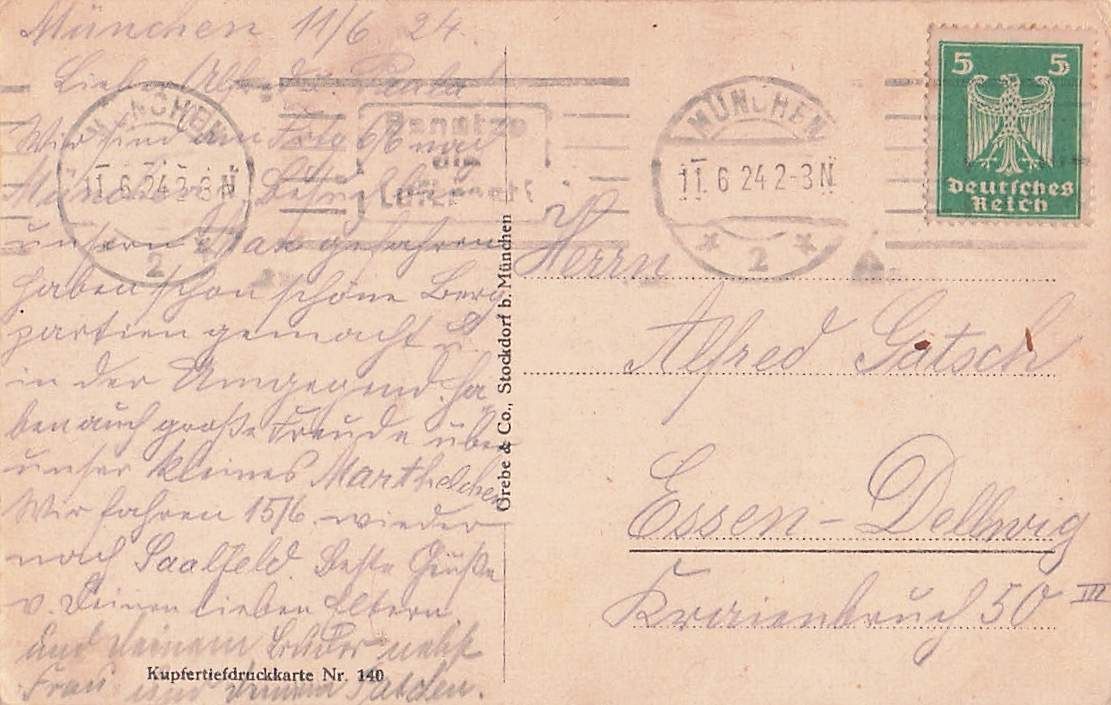 München 11/6 24.
Lieber Alfred u. Paula
Wir sind am Frtg 6/6 nach
München
unsern Max gefahren
haben schon schöne Berg
partien gemacht u.
in der Umgegend. Ha
ben auch große Freude über
unser kleines Marthelchen
Wir fahren 15/6. wieder
nach Saalfeld. Beste Grüße
v. Deinen lieben Eltern
und Deinem Bruder nebst
Frau und
Kupfertiefdruckkarte Nr. 140
Grebe & Co., Stockdorf b. München
MÜNCHEN
11. 6 24 2-3 N
* 2 *
Benutze
die
Luftpost!
MÜNCHEN
11. 6 24 2-3 N
* 2 *
5 5
Deutsches
Reich
Herrn
Alfred Gatsch
Essen-Dellwig
50 III